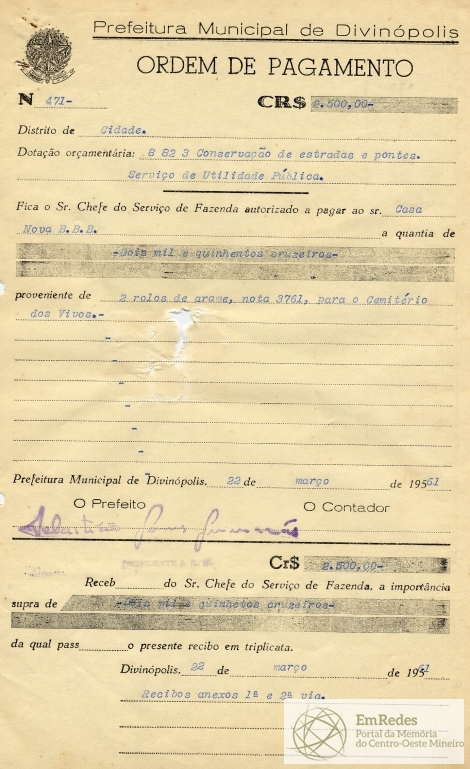 Prefeitura Municipal de Divinópolis
ORDEM DE PAGAMENTO
N 471- CR$ 2.500,00-
Distrito de Cidade.
Dotação orçamentária: 8 82 3 Conservação de estradas e pontes.
Serviço de Utilidade Pública.
Fica o Sr. Chefe do Serviço de Fazenda autorizado a pagar ao sr. Casa
Nova B.B.B. a quantia de
-Dois mil e quinhentos cruzeiros-
proveniente de 2 rolos de arame, nota 3761, para o Cemitério
dos Vivos.-
-
-
-
-
-
-
Prefeitura Municipal de Divinópolis, 22 de março de 19561
O Prefeito O Contador
Cr$ 2.500,00-
Receb do Sr. Chefe do Serviço de Fazenda, a importância
supra de -Dois mil e quinhetos cruzeiros-
da qual pass o presente recibo em triplicata.
Divinópolis, 22 de março de 19561
Recibos anexos 1ª e 2ª via.
EmRedes
Portal da Memória
do Centro-Oeste Mineiro